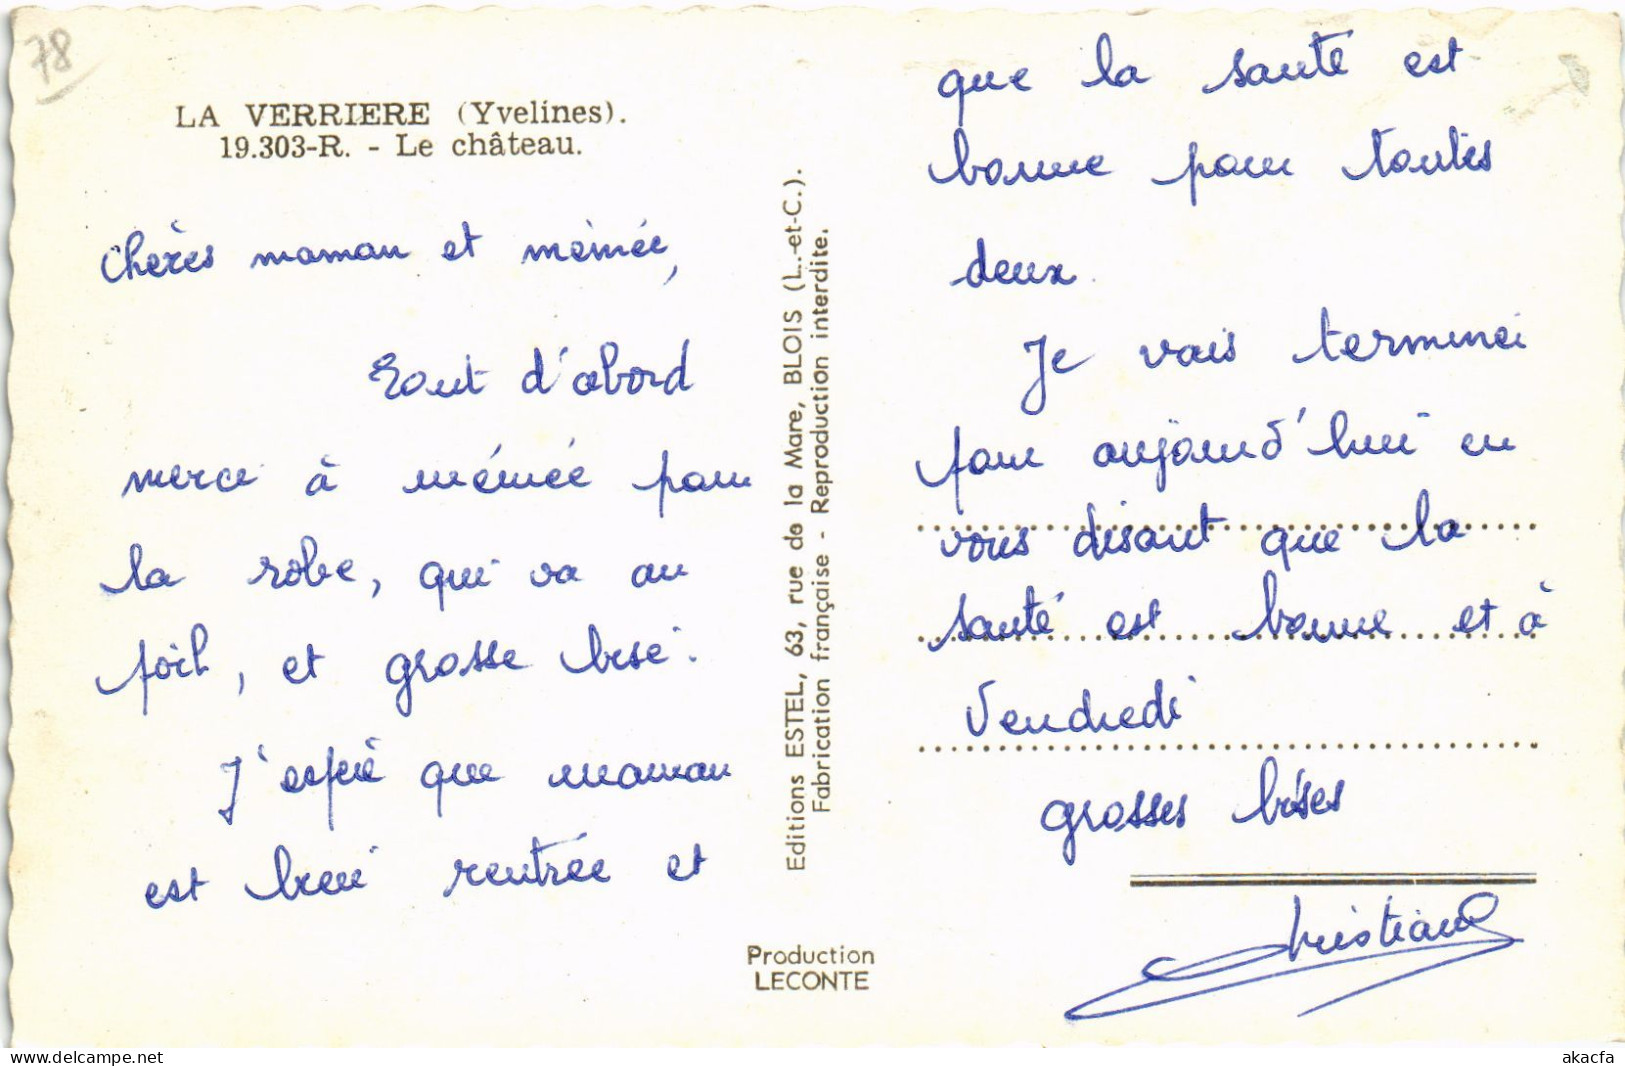 78
LA VERRIERE (Yvelines).
19.303-R. - Le château.
chères maman et mémée,
Tout d'abord
merci à mémée pour
la robe, qui va au
poil, et grosse bise.
J'espère que maman
est bien rentrée et
Editions ESTEL, 63, rue de la Mare, BLOIS (L.-et-C.).
Fabrication française - Reproduction interdite.
Production
LECONTE
que la santé est
bonne pour toutes
deux.
Je vais terminer
pour aujourd'hui en
vous disant que la
santé est bonne et à
Vendredi
grosses bises
christiane
© delcampe.net
akacfa